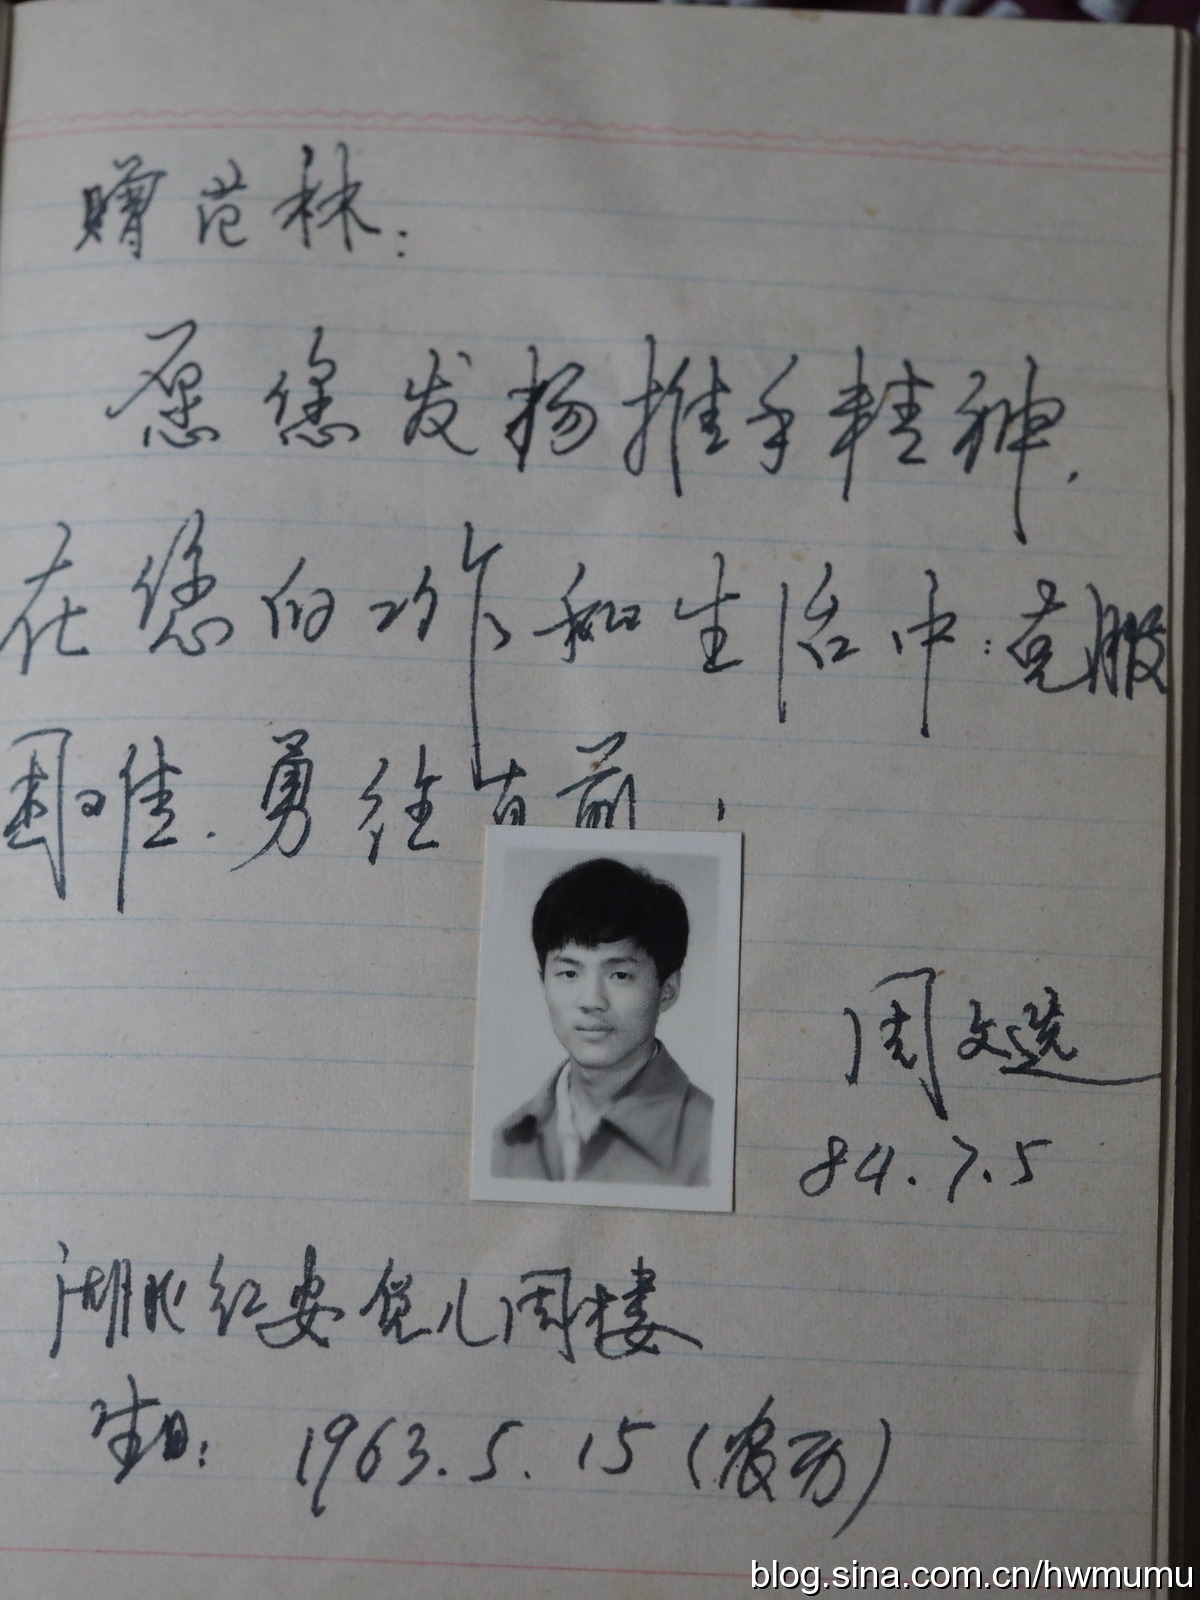 赠范林：
愿您发扬推手精神，
在您的工作和生活中：克服
困难，勇往直前，
周文选
84.7.5
湖北红安觅儿周楼
生日： 1963.5.15（农历）
blog.sina.com.cn/hwmumu